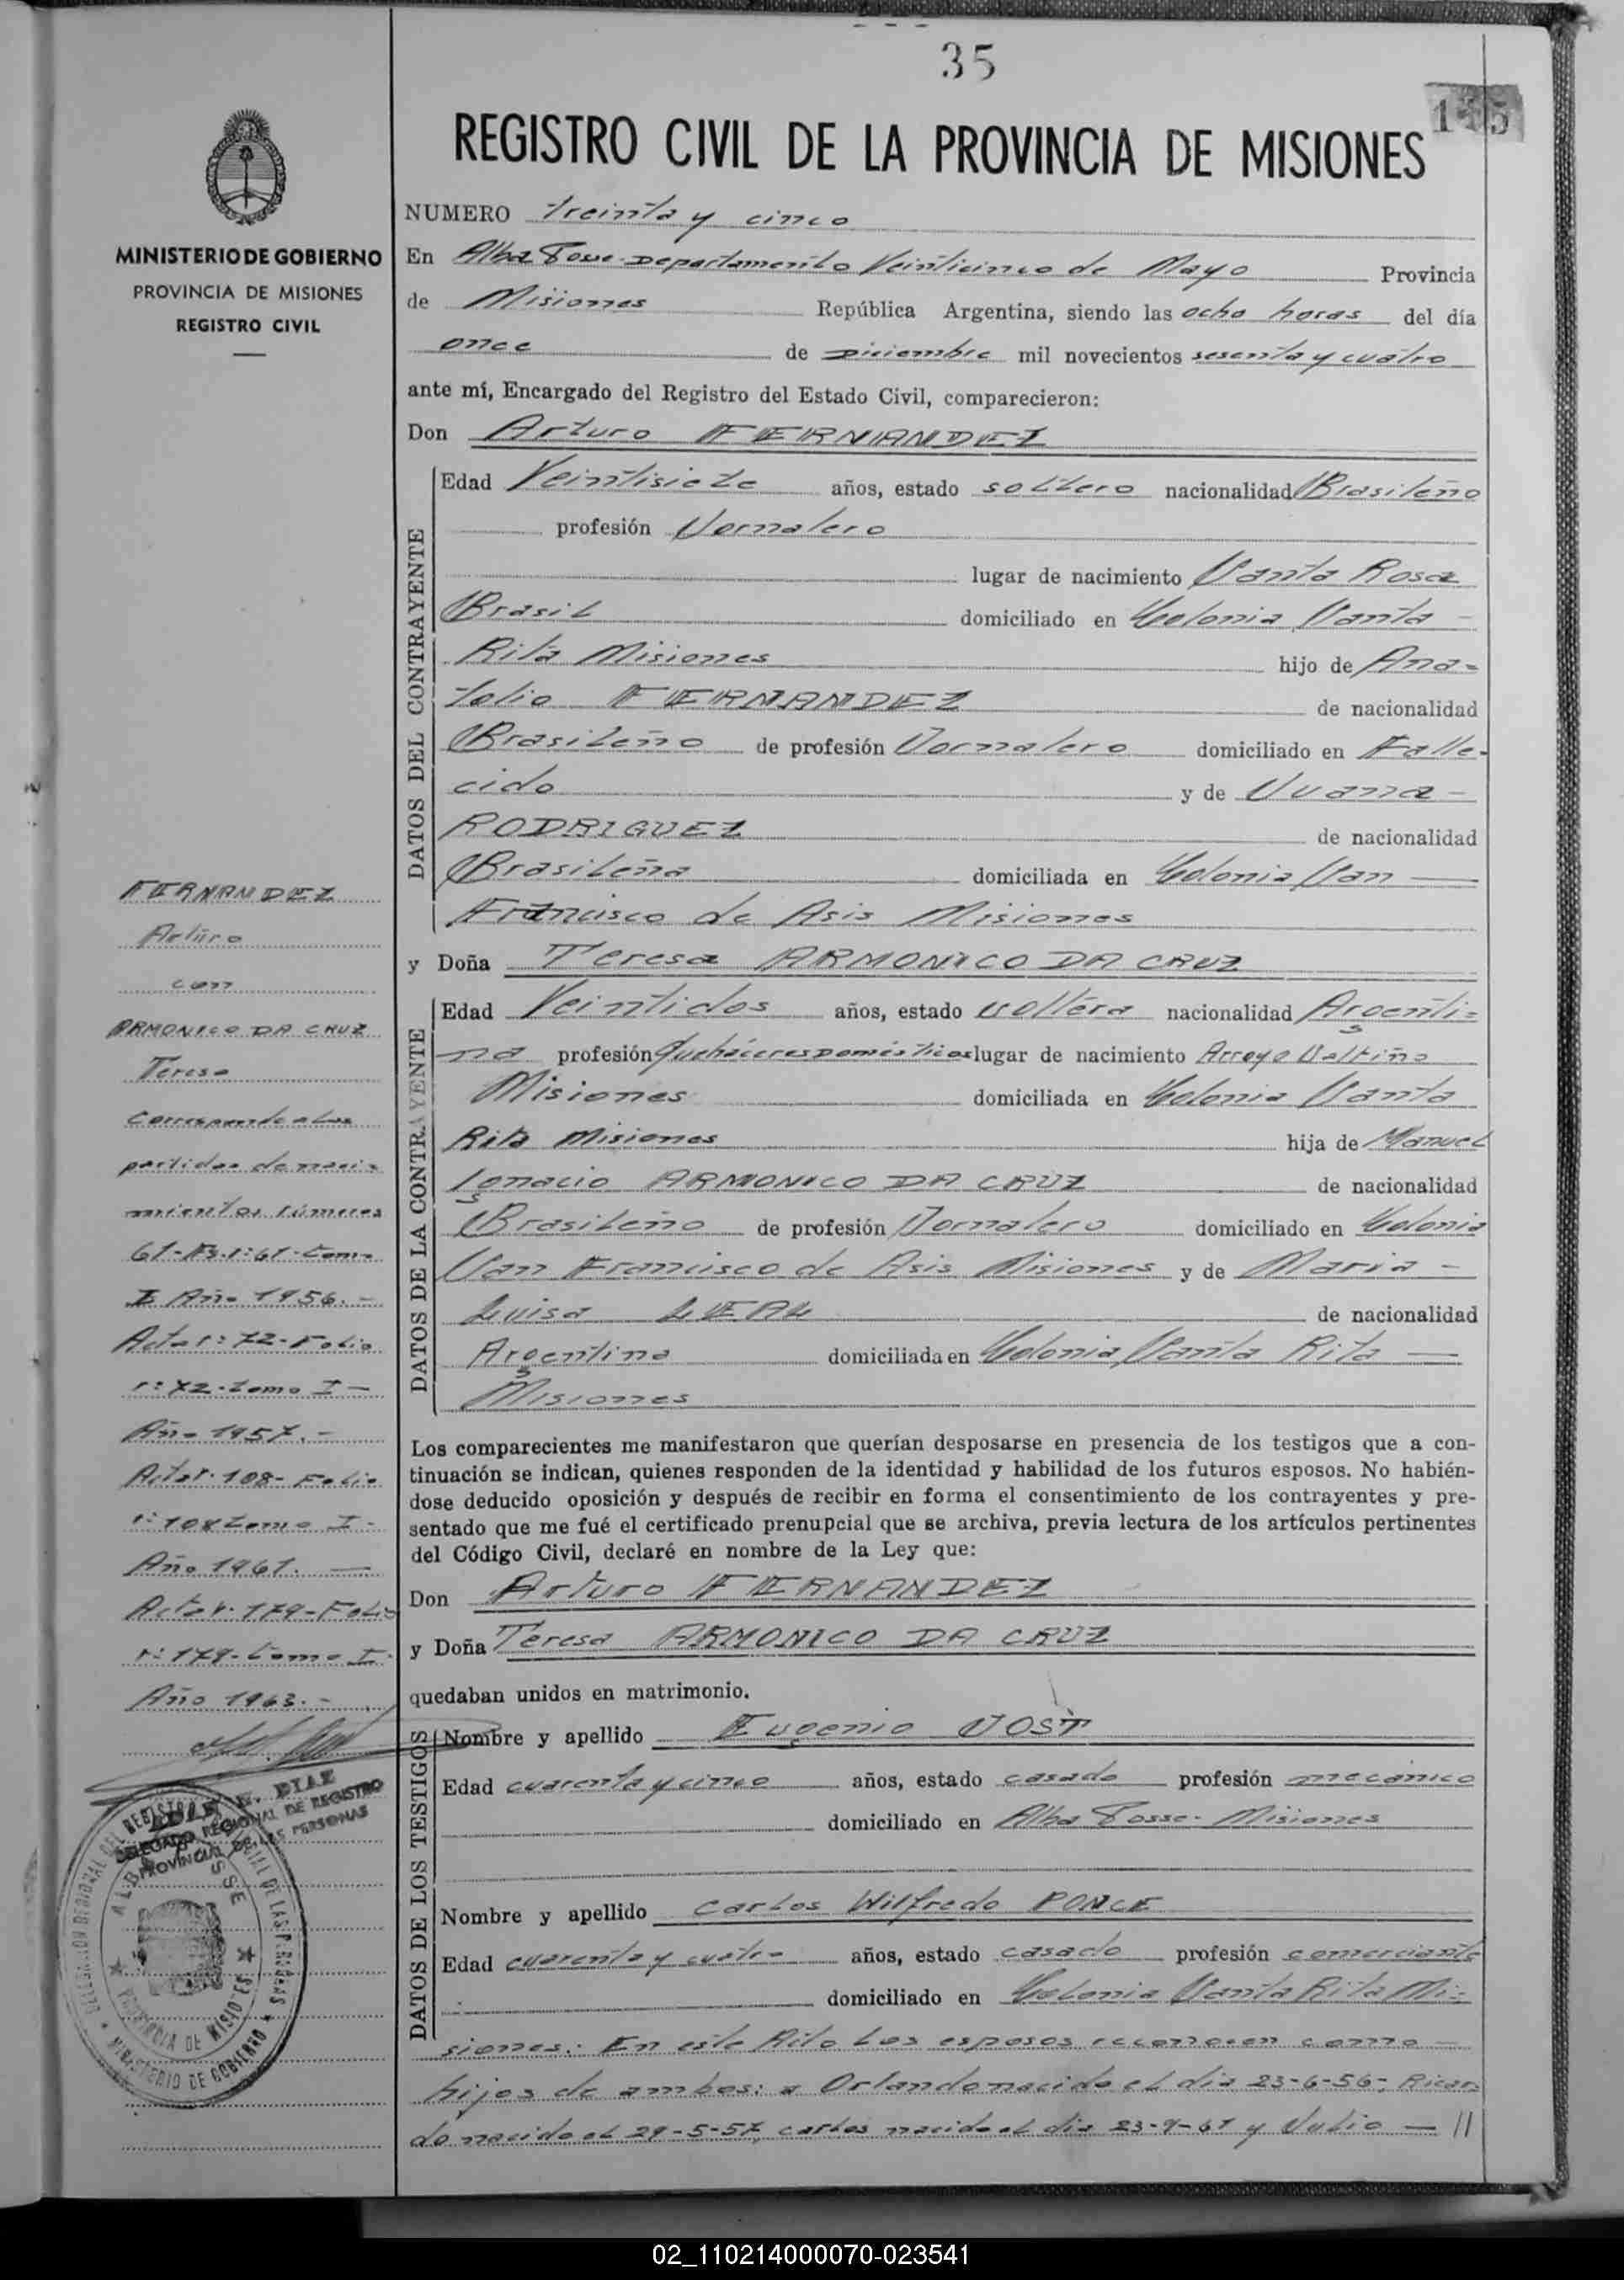 35
145
REGISTRO CIVIL DE LA PROVINCIA DE MISIONES
MINISTERIO DE GOBIERNO
PROVINCIA DE MISIONES
REGISTRO CIVIL
NUMERO treinta y cinco
En Alba Posse Departamento Veinticinco de Mayo Provincia
de Misiones República Argentina, siendo las ocho horas del día
once de Diciembre mil novecientos sesenta y cuatro
ante mí, Encargado del Registro del Estado Civil, comparecieron:
Don Arturo FERNANDEZ
DATOS DEL CONTRAYENTE
Edad Veintisiete años, estado soltero nacionalidad Brasileño
profesión Jornalero
lugar de nacimiento Santa Rosa
Brasil domiciliado en Colonia Santa -
Rita Misiones hijo de Ana-
tolio FERNANDEZ de nacionalidad
Brasileño de profesión Jornalero domiciliado en Falle-
cido y de Juana -
RODRIGUEZ de nacionalidad
Brasileña domiciliada en Colonia San —
Francisco de Asis Misiones
y Doña Teresa ARMONICO DA CRUZ
DATOS DE LA CONTRAYENTE
Edad Veintidos años, estado soltera nacionalidad Argenti-
na profesión Quehaceres Domésticos lugar de nacimiento Arroyo Saltiño
Misiones domiciliada en Colonia Santa
Rita Misiones hija de Manuel
Ignacio ARMONICO DA CRUZ de nacionalidad
Brasileño de profesión Jornalero domiciliado en Colonia
San Francisco de Asis Misiones y de Maria -
Luisa LEAL de nacionalidad
Argentina domiciliada en Colonia Santa Rita —
Misiones
Los comparecientes me manifestaron que querían desposarse en presencia de los testigos que a con-
tinuación se indican, quienes responden de la identidad y habilidad de los futuros esposos. No habién-
dose deducido oposición y después de recibir en forma el consentimiento de los contrayentes y pre-
sentado que me fué el certificado prenupcial que se archiva, previa lectura de los artículos pertinentes
del Código Civil, declaré en nombre de la Ley que:
Don Arturo FERNANDEZ
y Doña Teresa ARMONICO DA CRUZ
quedaban unidos en matrimonio.
DATOS DE LOS TESTIGOS
Nombre y apellido Eugenio JOST
Edad cuarenta y cinco años, estado casado profesión mecánico
domiciliado en Alba Posse - Misiones
Nombre y apellido Carlos Wilfredo PONCE
Edad cuarenta y cuatro años, estado casado profesión comerciante
domiciliado en Colonia Santa Rita Mi-
siones. En este Acto los esposos reconocen como —
hijos de ambos: a Orlando nacido el día 23-6-56-, Ricar-
do nacido el 29-5-57, Carlos nacido el dia 23-9-61 y Julio — //
FERNANDEZ
Arturo
con
ARMONICO DA CRUZ
Teresa
Corresponde a las
partidas de naci-
mientos números
61-Fº.r:61-tomo
I Año 1956.-
Acta r: 72-Folio
r: 72-tomo I -
Año 1957.-
Acta r. 108-Folio
r: 108 tomo I -
Año 1961. —
Acta r. 179-Folio
r: 179-tomo I -
Año 1963.-
E. DIAZ
DELEGADO REGIONAL DE REGISTRO
PROVINCIAL DE LAS PERSONAS
ALBA POSSE
PROVINCIA DE MISIONES
MINISTERIO DE GOBIERNO
02_110214000070-023541